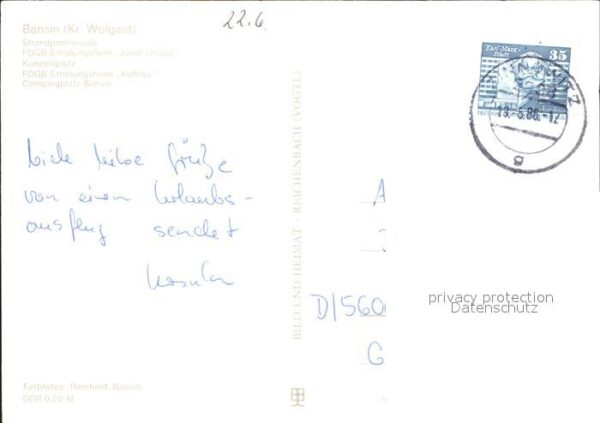 22.6
Bansin (Kr. Wolgast)
Strandpromenade
FDGB-Erholungsheim „Josef Orlopp“
Konzertplatz
FDGB-Erholungsheim „Aufbau“
Campingplatz Bansin
35
Karl-Marx-
Stadt
18.-5.86.-12
g
liebe Grüße
von einem Urlaubs-
ausflug sendet
Ursula
BILD UND HEIMAT · REICHENBACH (VOGTL)
A
D/560
G
privacy protection
Datenschutz
Farbfotos: Reinhold, Bansin
DDR 0,20 M